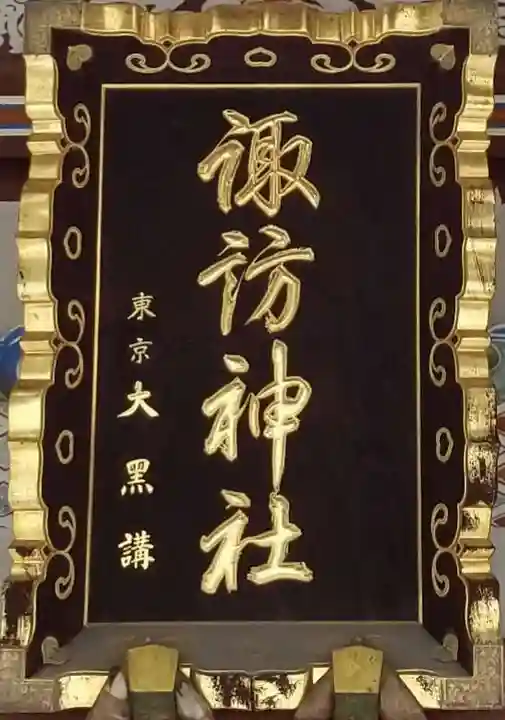 諏訪神社
東京大黑講